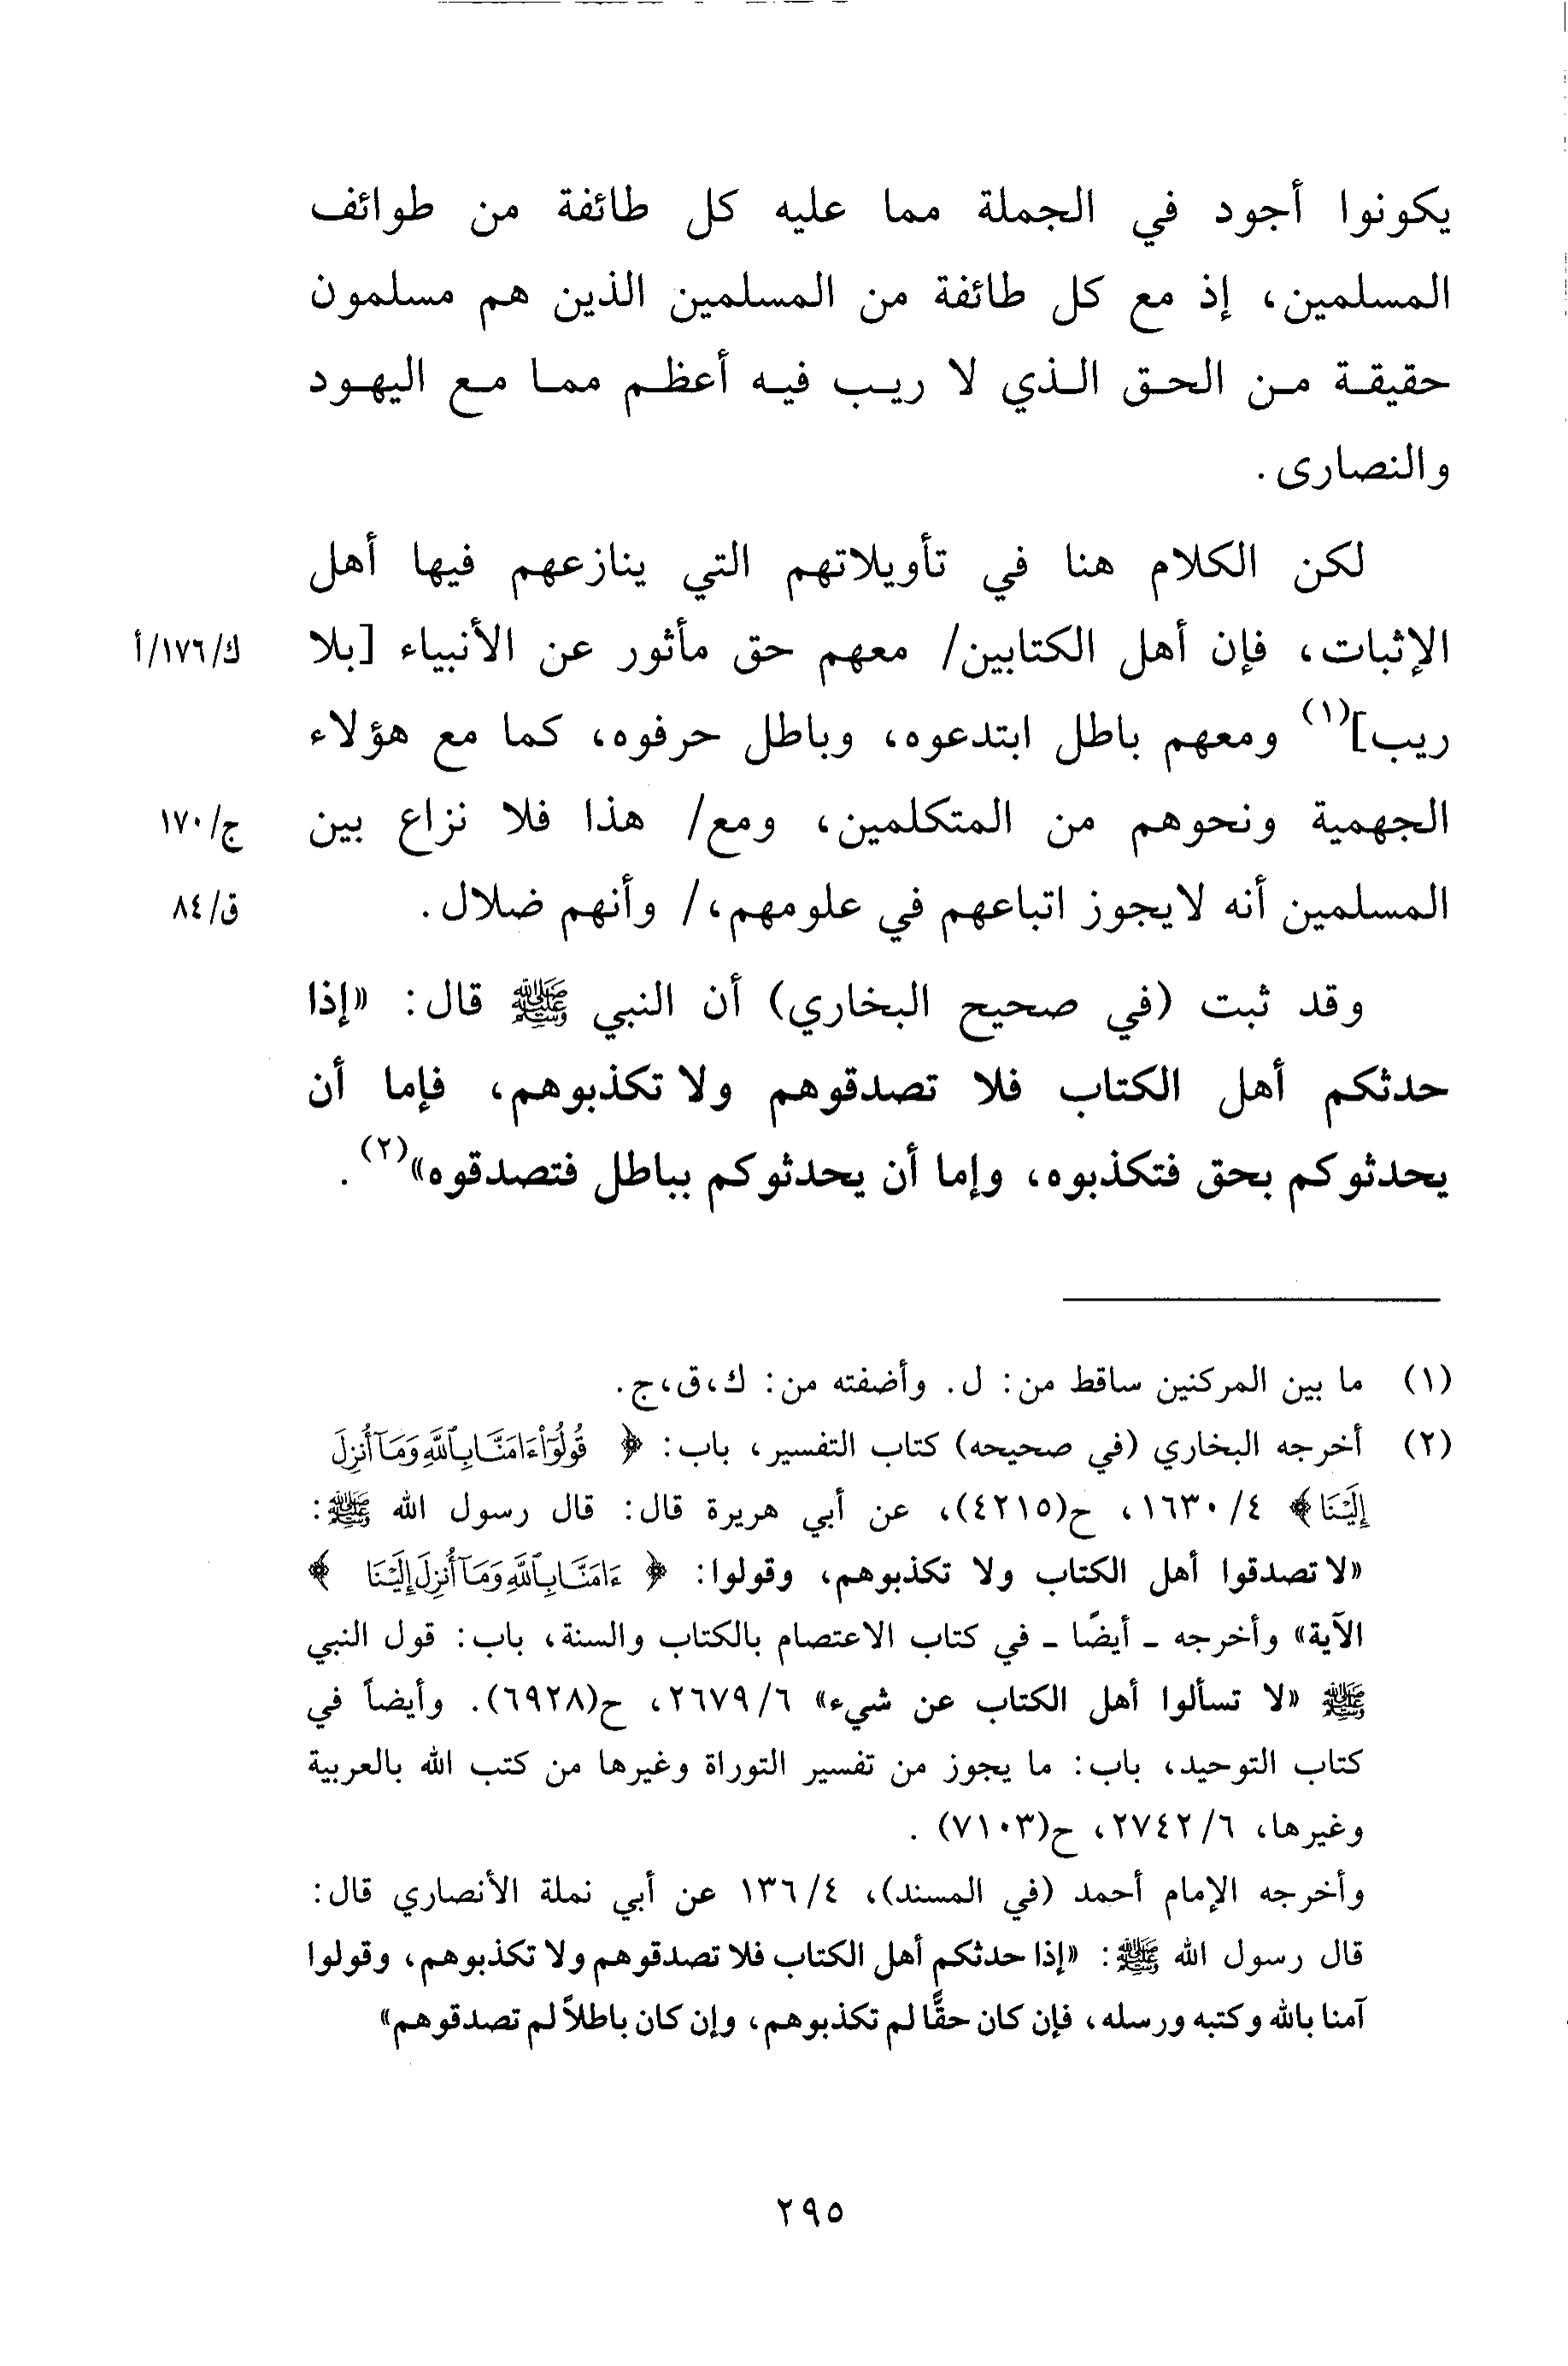 يكونوا أجود في الجملة مما عليه كل طائفة من طوائف
المسلمين، إذ مع كل طائفة من المسلمين الذين هم مسلمون
حقيقـة مـن الحـق الـذي لا ريـب فيـه أعظـم ممـا مـع اليهـود
والنصارى.
لكن الكلام هنا في تأويلاتهم التي ينازعهم فيها أهل
الإثبات، فإن أهل الكتابين/ معهم حق مأثور عن الأنبياء [بلا ك/١٧٦/أ
ريب](١) ومعهم باطل ابتدعوه، وباطل حرفوه، كما مع هؤلاء
الجهمية ونحوهم من المتكلمين، ومع/ هذا فلا نزاع بين ج/١٧٠
المسلمين أنه لايجوز اتباعهم في علومهم،/ وأنهم ضلال. ق/٨٤
وقد ثبت (في صحيح البخاري) أن النبي ﷺ قال: «إذا
حدثكم أهل الكتاب فلا تصدقوهم ولا تكذبوهم، فإما أن
يحدثوكم بحق فتكذبوه، وإما أن يحدثوكم بباطل فتصدقوه»(٢).
(١) ما بين المركنين ساقط من: ل. وأضفته من: ك،ق،ج.
(٢) أخرجه البخاري (في صحيحه) كتاب التفسير، باب: ﴿ قُولُوٓا۟ ءَامَنَّا بِٱللَّهِ وَمَآ أُنزِلَ
إِلَيْنَا ﴾ ٤/ ١٦٣٠، ح(٤٢١٥)، عن أبي هريرة قال: قال رسول الله ﷺ:
«لا تصدقوا أهل الكتاب ولا تكذبوهم، وقولوا: ﴿ ءَامَنَّا بِٱللَّهِ وَمَآ أُنزِلَ إِلَيْنَا ﴾
الآية» وأخرجه ـ أيضًا ـ في كتاب الاعتصام بالكتاب والسنة، باب: قول النبي
ﷺ «لا تسألوا أهل الكتاب عن شيء» ٦/ ٢٦٧٩، ح(٦٩٢٨). وأيضاً في
كتاب التوحيد، باب: ما يجوز من تفسير التوراة وغيرها من كتب الله بالعربية
وغيرها، ٦/ ٢٧٤٢، ح(٧١٠٣) .
وأخرجه الإمام أحمد (في المسند)، ٤/ ١٣٦ عن أبي نملة الأنصاري قال:
قال رسول الله ﷺ: «إذا حدثكم أهل الكتاب فلا تصدقوهم ولا تكذبوهم، وقولوا
آمنا بالله وكتبه ورسله، فإن كان حقًّا لم تكذبوهم، وإن كان باطلاً لم تصدقوهم»
٢٩٥